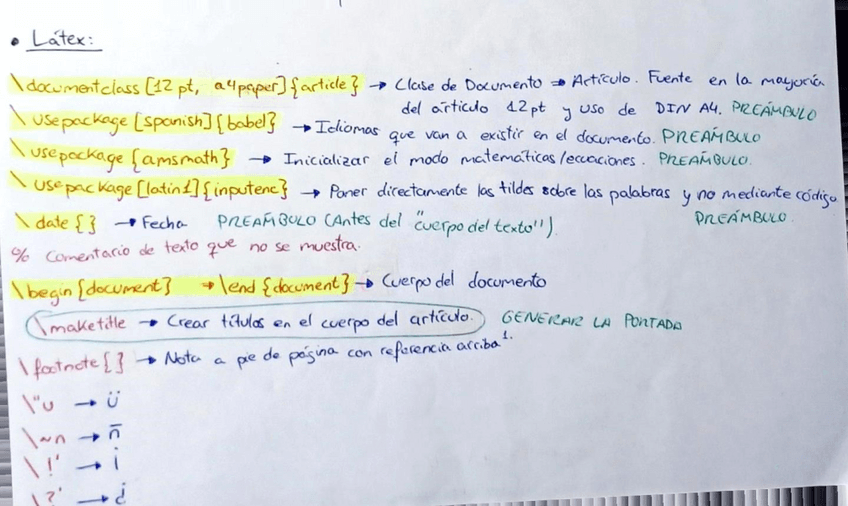 • Látex:
\documentclass [12pt, a4paper]{article} → Clase de Documento ⇒ Artículo. Fuente en la mayoría
del artículo 12pt y uso de DIN A4. PREÁMBULO
\usepackage [spanish]{babel} → Idiomas que van a existir en el documento. PREÁMBULO
\usepackage {amsmath} → Inicializar el modo matemáticas/ecuaciones. PREÁMBULO.
\usepackage [latin1]{inputenc} → Poner directamente las tildes sobre las palabras y no mediante código
PREÁMBULO.
\date { } → Fecha PREÁMBULO (Antes del "cuerpo del texto").
% Comentario de texto que no se muestra.
\begin {document} → \end {document} → Cuerpo del documento
\maketitle → Crear títulos en el cuerpo del artículo. GENERAR LA PORTADA
\footnote { } → Nota a pie de página con referencia arriba¹.
\"u → ü
\~n → ñ
\!' → ¡
\?' → ¿